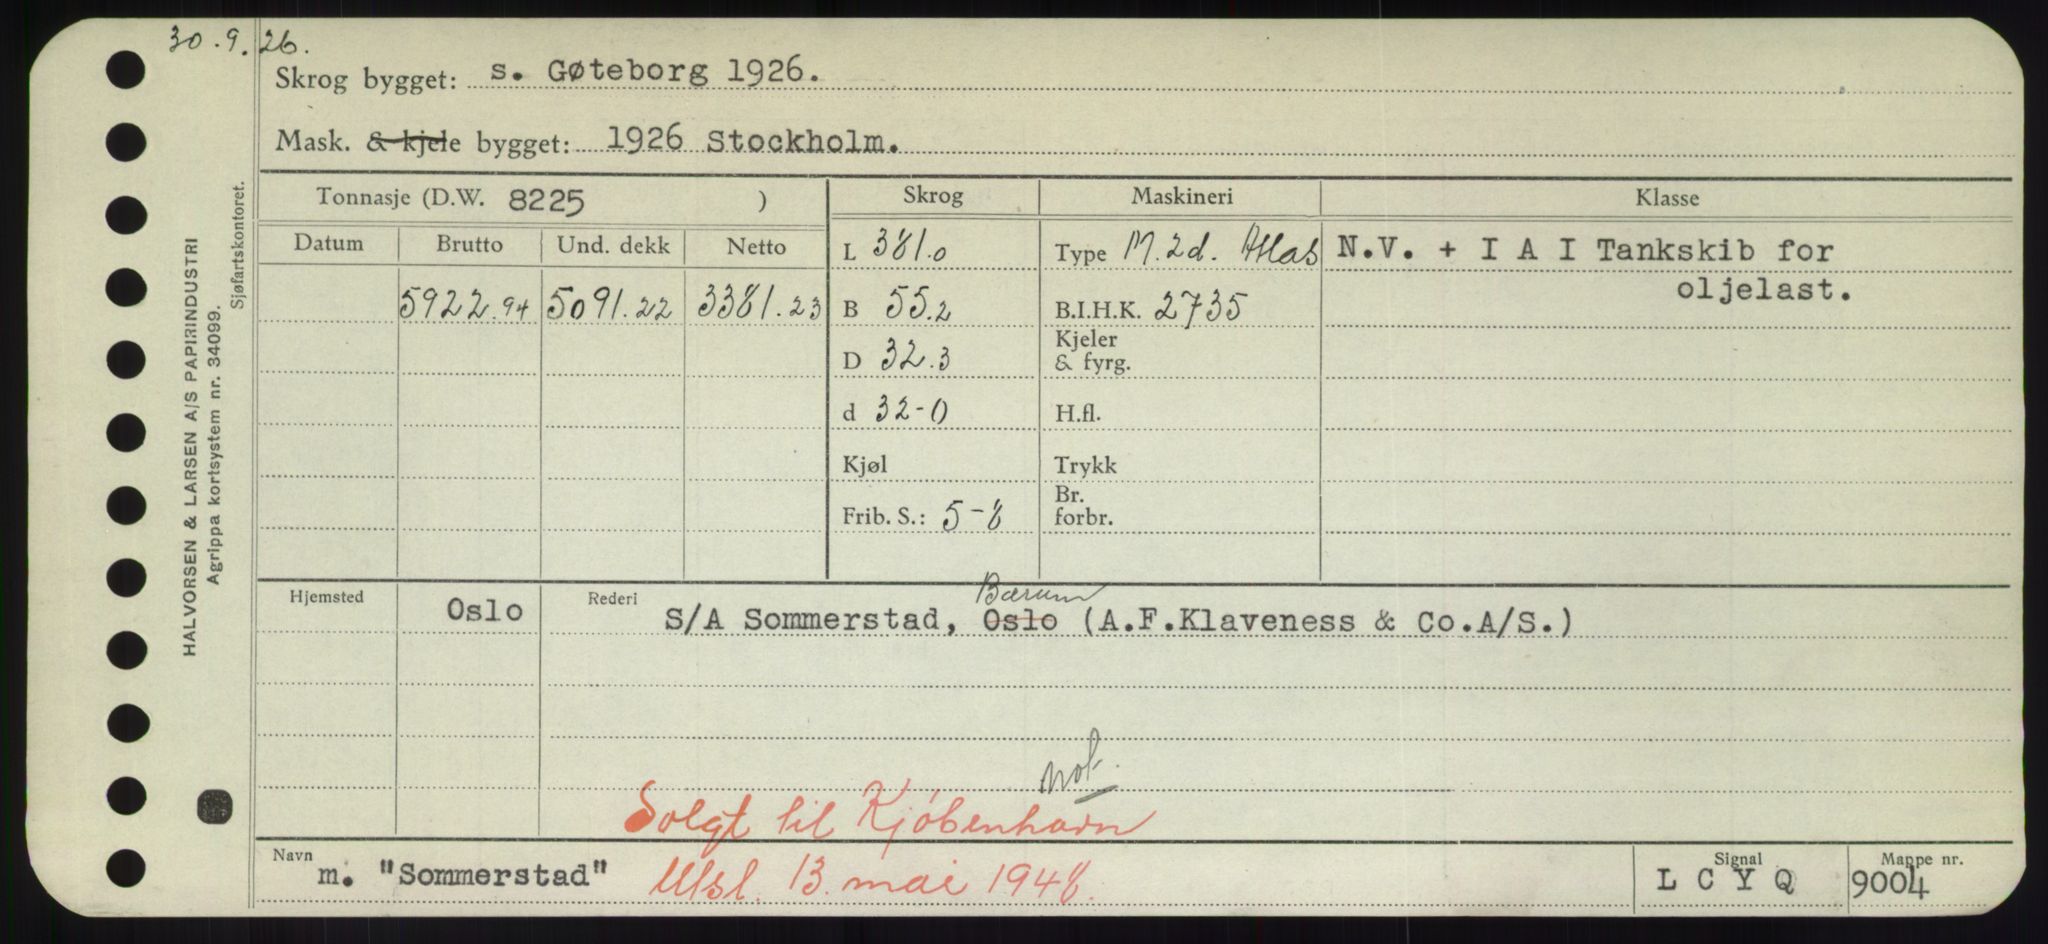 30.9.26.
Skrog bygget: s. Gøteborg 1926.
Mask. & kjele bygget: 1926 Stockholm.
Tonnasje (D.W. 8225 )
Skrog
Maskineri
Klasse
Datum Brutto Und. dekk Netto
5922.94 5091.22 3381.23
L 381.0
B 55.2
D 32.3
d 32-0
Kjøl
Frib. S.: 5-8
Type M.2d. Atlas
B.I.H.K. 2735
Kjeler
& fyrg.
H.fl.
Trykk
Br.
forbr.
N.V. + I A I Tankskib for
oljelast.
Hjemsted Oslo
Rederi
Bærum
S/A Sommerstad, Oslo (A.F.Klaveness & Co.A/S.)
not.
Solgt til Kjøbenhavn
Navn
m. "Sommerstad" Utsl. 13. mai 1948.
Signal
L C Y Q
Mappe nr.
9004
HALVORSEN & LARSEN A/S PAPIRINDUSTRI
Agrippa kortsystem nr. 34099.
Sjøfartskontoret.